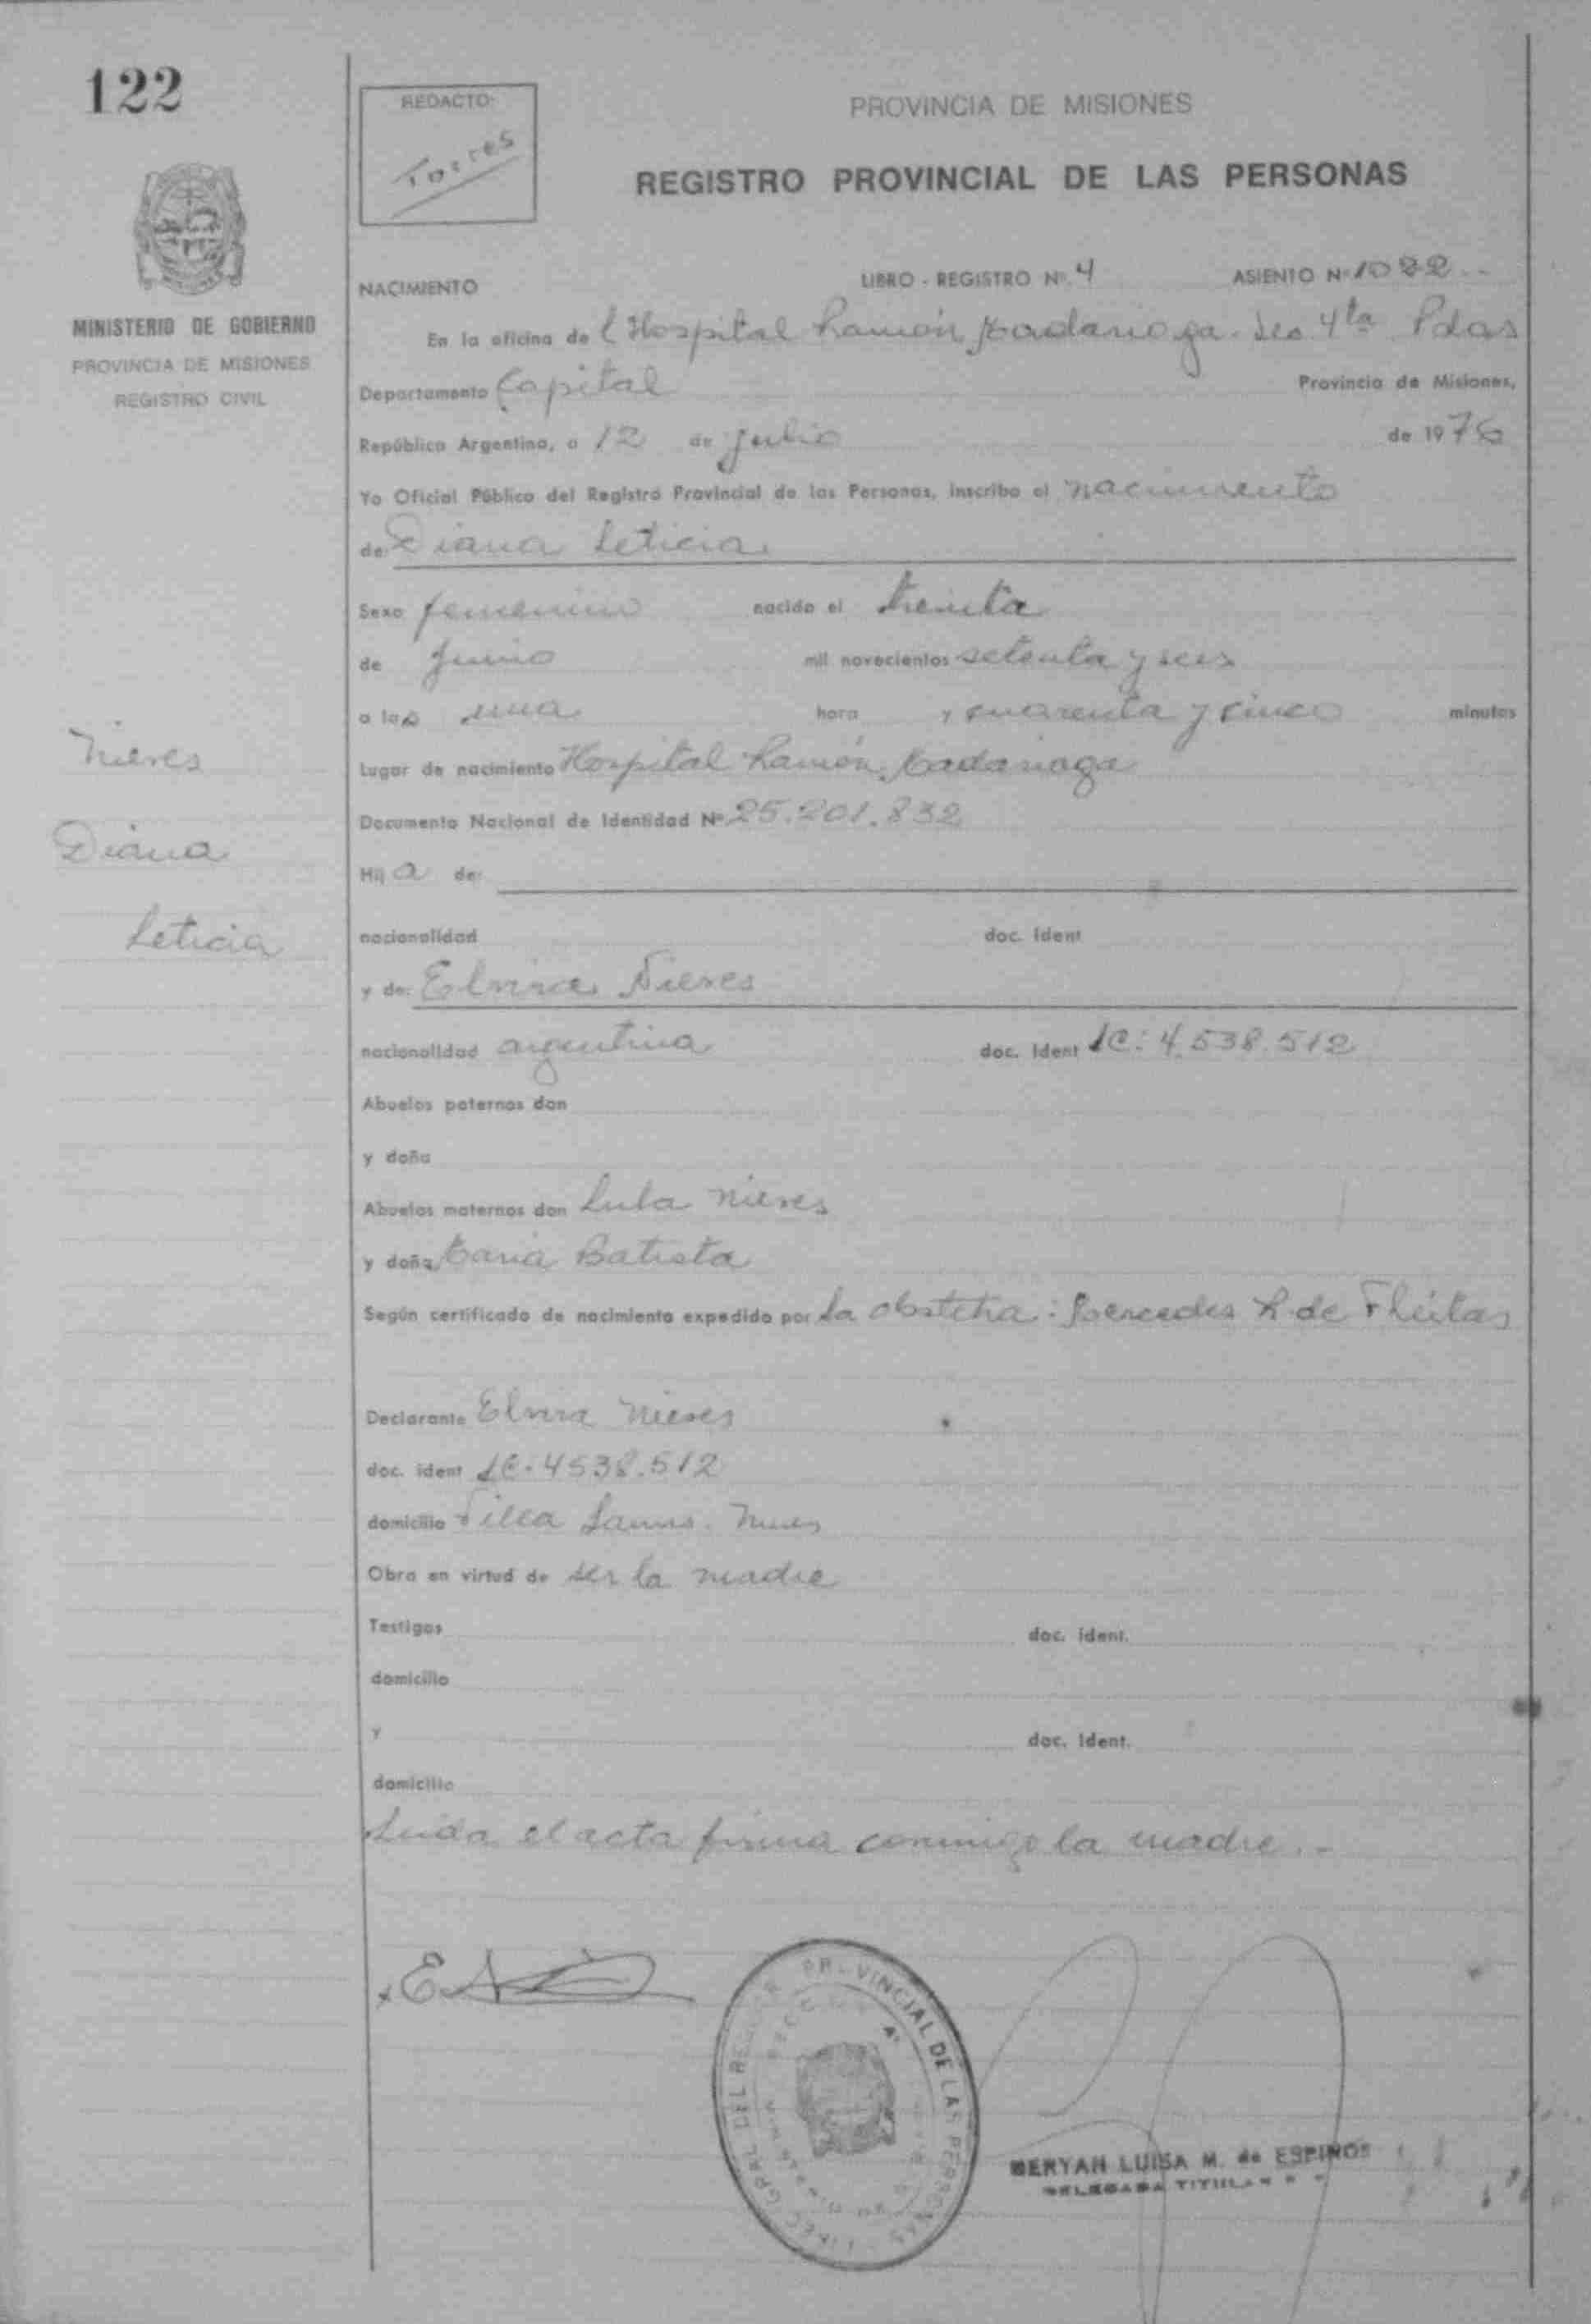 122
REDACTO:
Torres
PROVINCIA DE MISIONES
REGISTRO PROVINCIAL DE LAS PERSONAS
MINISTERIO DE GOBIERNO
PROVINCIA DE MISIONES
REGISTRO CIVIL
NACIMIENTO LIBRO - REGISTRO Nº 4 ASIENTO Nº 1022
En la oficina de l Hospital Ramón Madariaga. Sec 4ta Pdas
Departamento Capital Provincia de Misiones,
República Argentina, a 12 de julio de 1976
Yo Oficial Público del Registro Provincial de las Personas, inscribo el nacimiento
de: Diana Leticia
Sexo femenino nacido el treinta
de junio mil novecientos setenta y seis
a las una hora y cuarenta y cinco minutos
Lugar de nacimiento Hospital Ramón Madariaga
Documento Nacional de Identidad Nº 25.201.832
Hij a de:
nacionalidad doc. Ident
y de: Elvira Nieves
nacionalidad argentina doc. Ident LC: 4.538.512
Abuelos paternos don
y doña
Abuelos maternos don Lula Nieves
y doña Maria Batista
Según certificado de nacimiento expedido por La obstetra: Mercedes R. de Fleitas
Declarante Elvira Nieves
doc. ident LC. 4538.512
domicilio Villa
Obra en virtud de ser la madre
Testigos doc. ident.
domicilio
y doc. Ident.
domicilio
Leida el acta firma conmigo la madre.-
Nieves
Diana
Leticia
PROVINCIAL DE LAS PERSONAS
MERYAN LUISA M. de ESPINOS
DELEGADA TITULAR